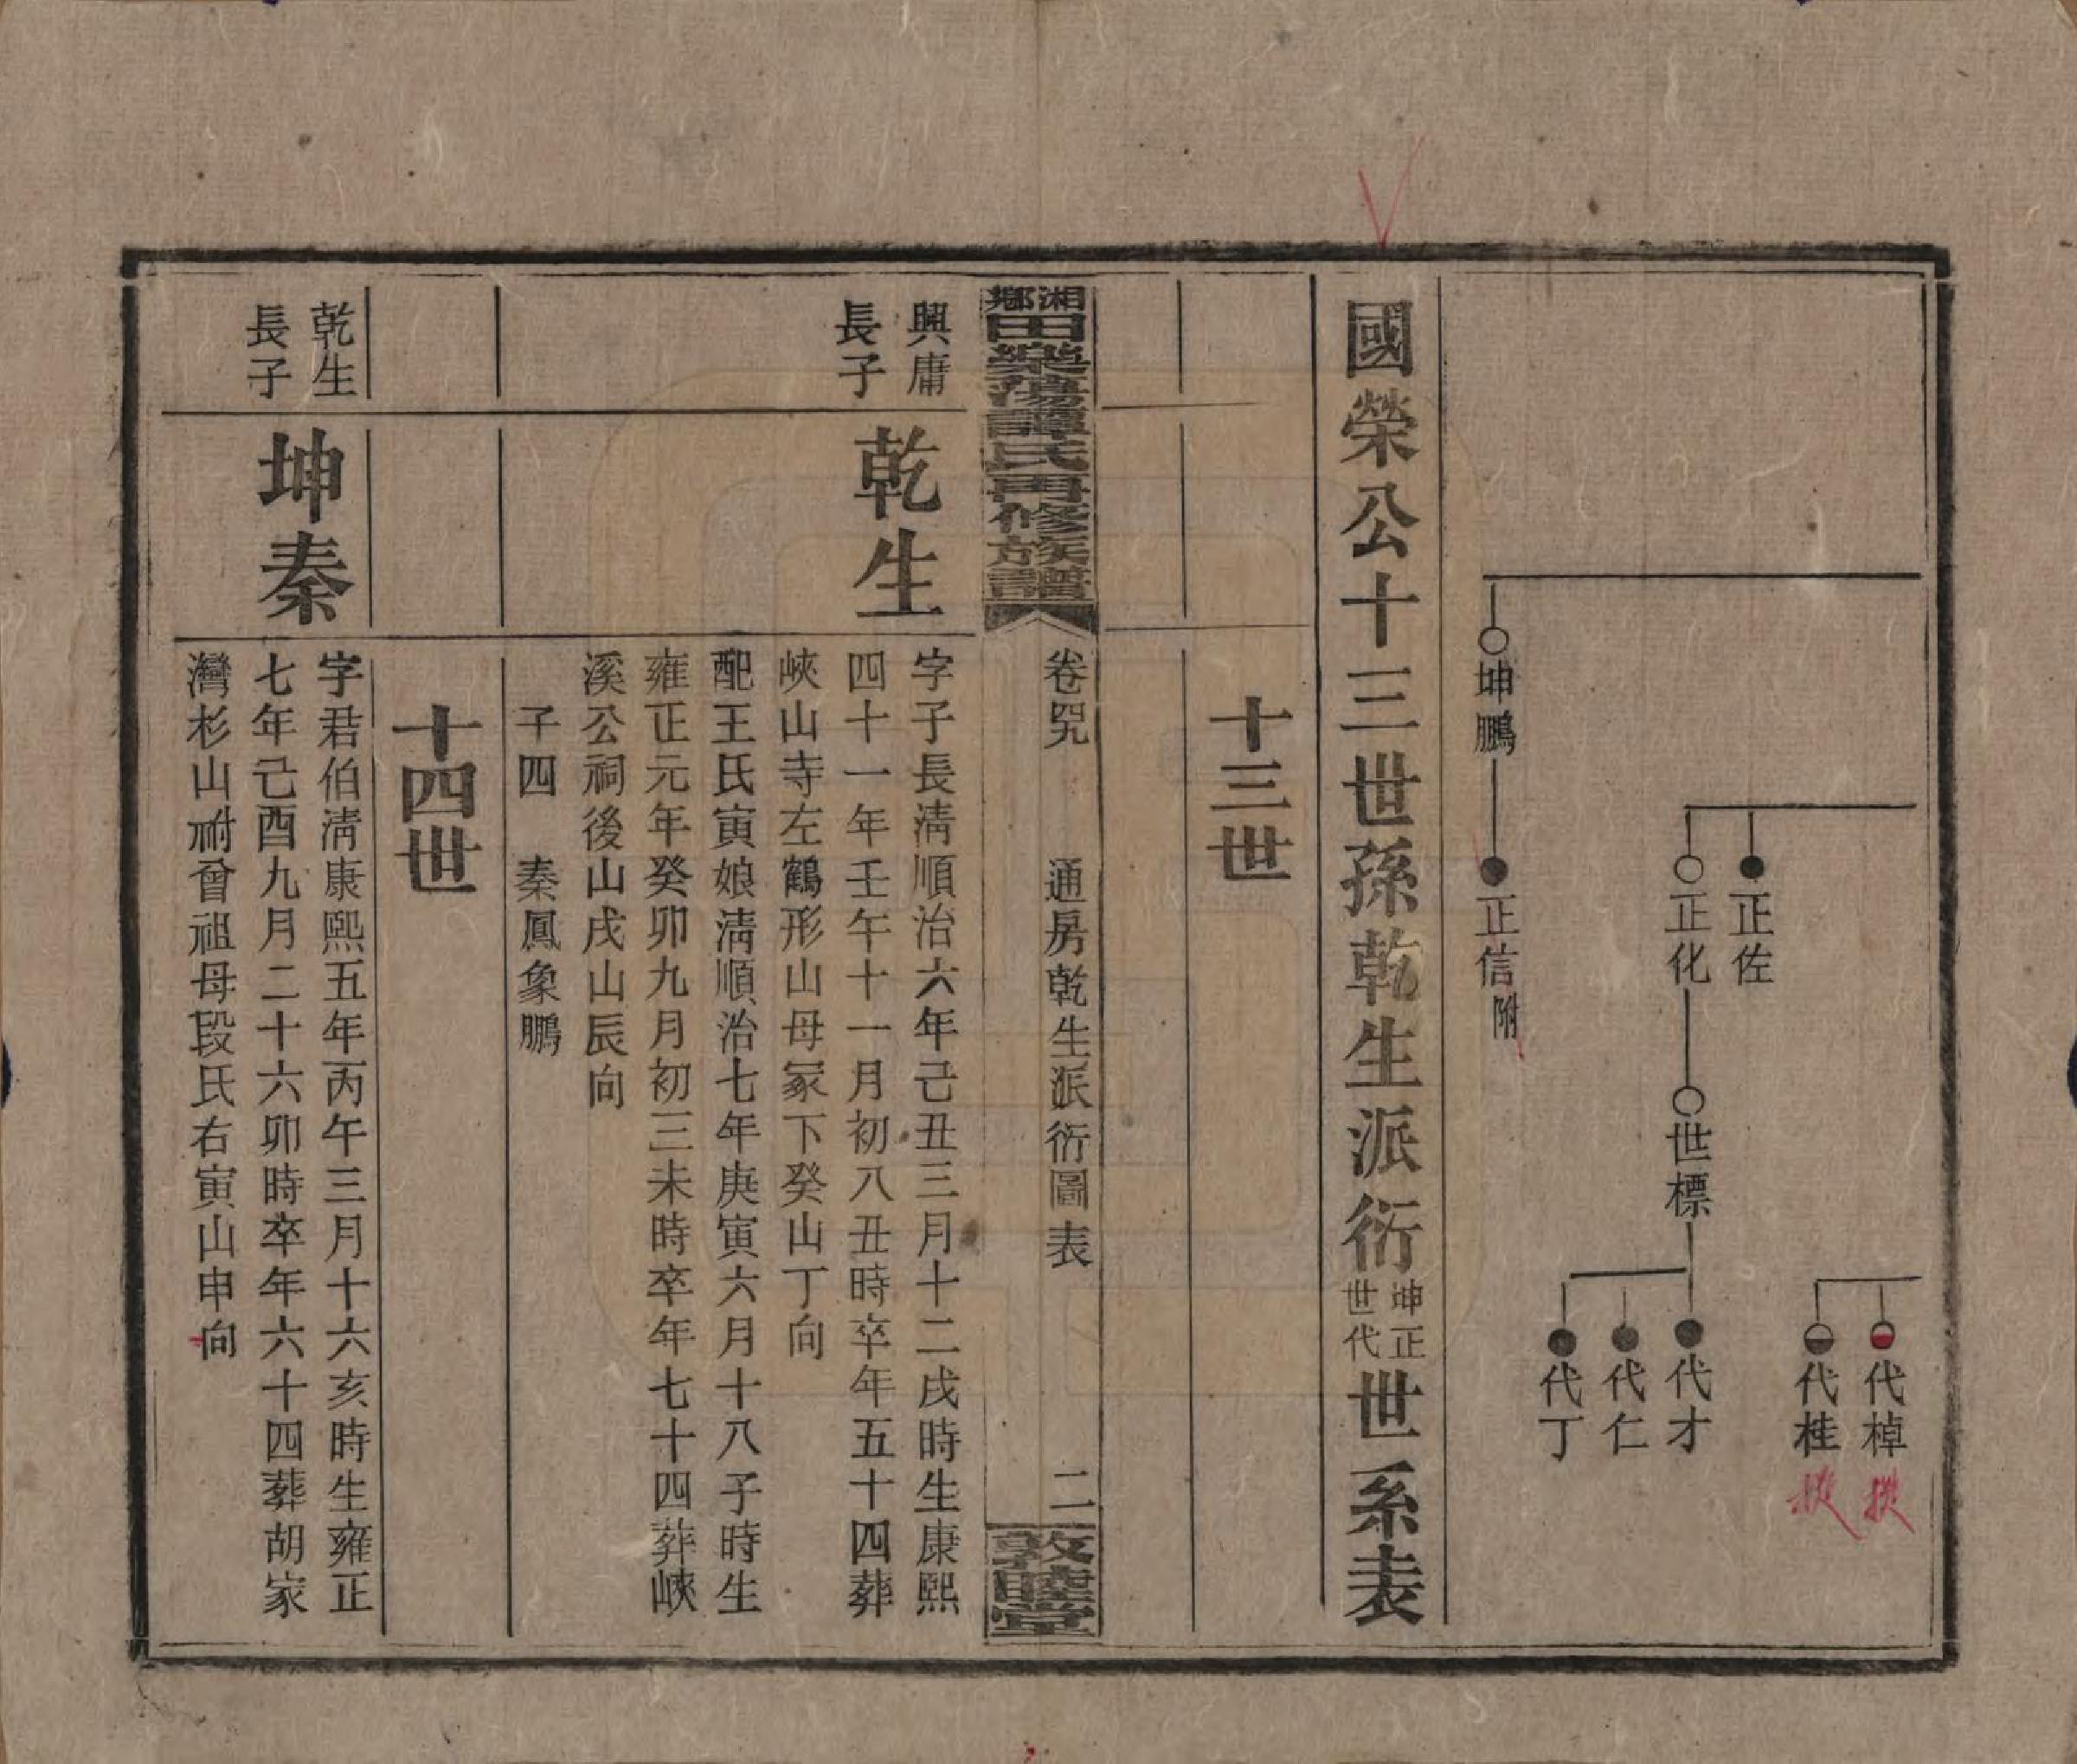 坤鵬
正信附
正佐
正化
世標
代棹
代桂
代才
代仁
代丁
國榮公十三世孫乾生派衍坤正世代世系表
十三世
湘鄉田樂蕩譚氏再修族譜
卷𦉭
通房乾生派衍圖表
二
敦睦堂
興庸
長子
乾生
字子長淸順治六年己丑三月十二戌時生康熙
四十一年壬午十一月初八丑時卒年五十四葬
峽山寺左鶴形山母冢下癸山丁向
配王氏寅娘淸順治七年庚寅六月十八子時生
雍正元年癸卯九月初三未時卒年七十四葬峽
溪公祠後山戌山辰向
子四 秦鳳象鵬
十四世
乾生
長子
坤秦
字君伯淸康熙五年丙午三月十六亥時生雍正
七年己酉九月二十六卯時卒年六十四葬胡家
灣杉山祔曾祖母段氏右寅山申向